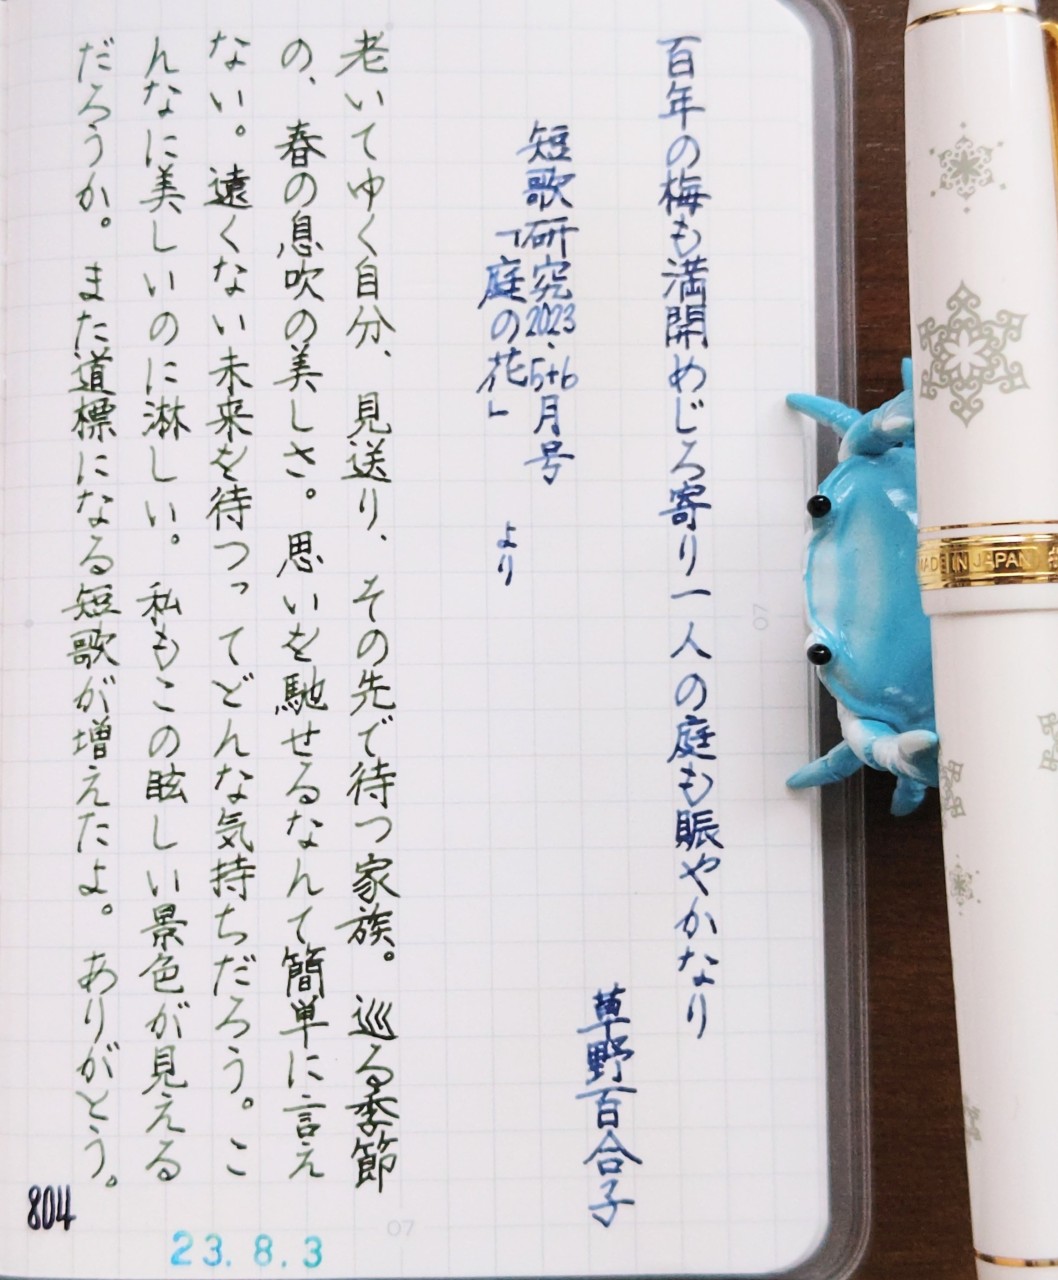 百年の梅も満開めじろ寄り一人の庭も賑やかなり
草野百合子
短歌研究2023.5+6月号
「庭の花」
より
老いてゆく自分、見送り、その先で待つ家族。巡る季節
の、春の息吹の美しさ。思いを馳せるなんて簡単に言え
ない。遠くない未来を待つってどんな気持ちだろう。こ
んなに美しいのに淋しい。私もこの眩しい景色が見える
だろうか。また道標になる短歌が増えたよ。ありがとう。
804
23.8.3
07
07
MADE IN JAPAN